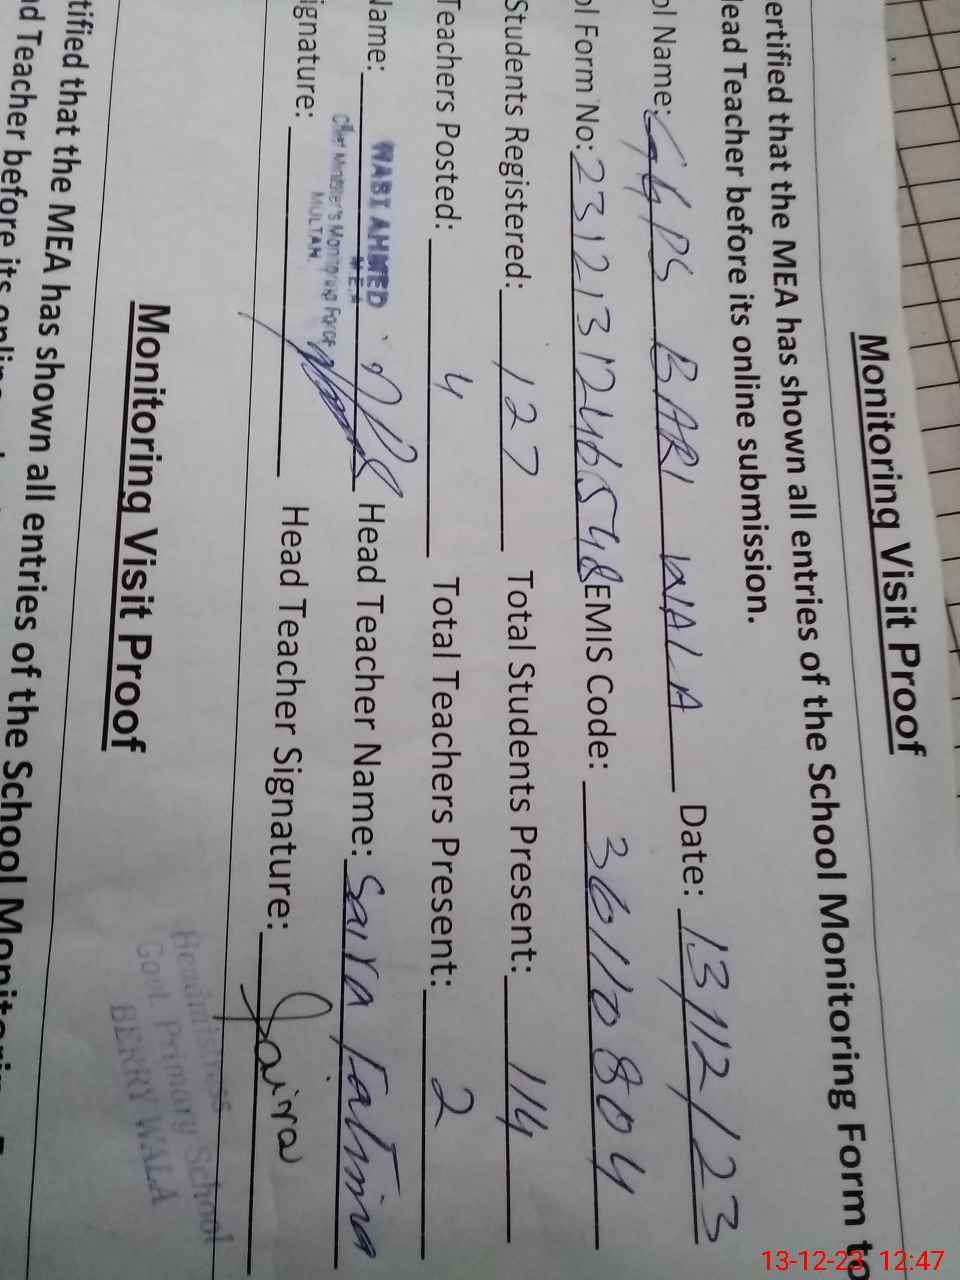 Monitoring Visit Proof
ertified that the MEA has shown all entries of the School Monitoring Form to
Head Teacher before its online submission.
ol Name: GGPS BARI WALA Date: 13/12/23
ol Form No: 2312131246548 EMIS Code: 36110804
Students Registered: 127 Total Students Present: 114
Teachers Posted: 4 Total Teachers Present: 2
Name: Head Teacher Name: Saira Fatima
WABI AHMED
MEA
Chief Minister's Monitoring Force
MULTAN.
ignature: Head Teacher Signature: Saira
Headmistress
Govt. Primary School
BERRY WALA
Monitoring Visit Proof
tified that the MEA has shown all entries of the School Monitoring
ad Teacher before its online
13-12-23 12:47